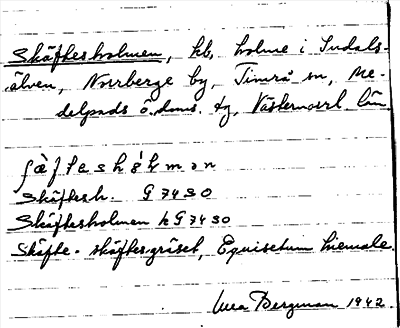 Skäftesholmen, hb, holme i Indals-
älven, Norrberge by, Timrå sn, Me-
delpads ö. doms. tg, Västernorrl. län
Skäftesh. G 7430
Skäftesholmen k G 7430
Skäfte - skäftesgräset, Equisetum hiemale.
Bergman 1942.